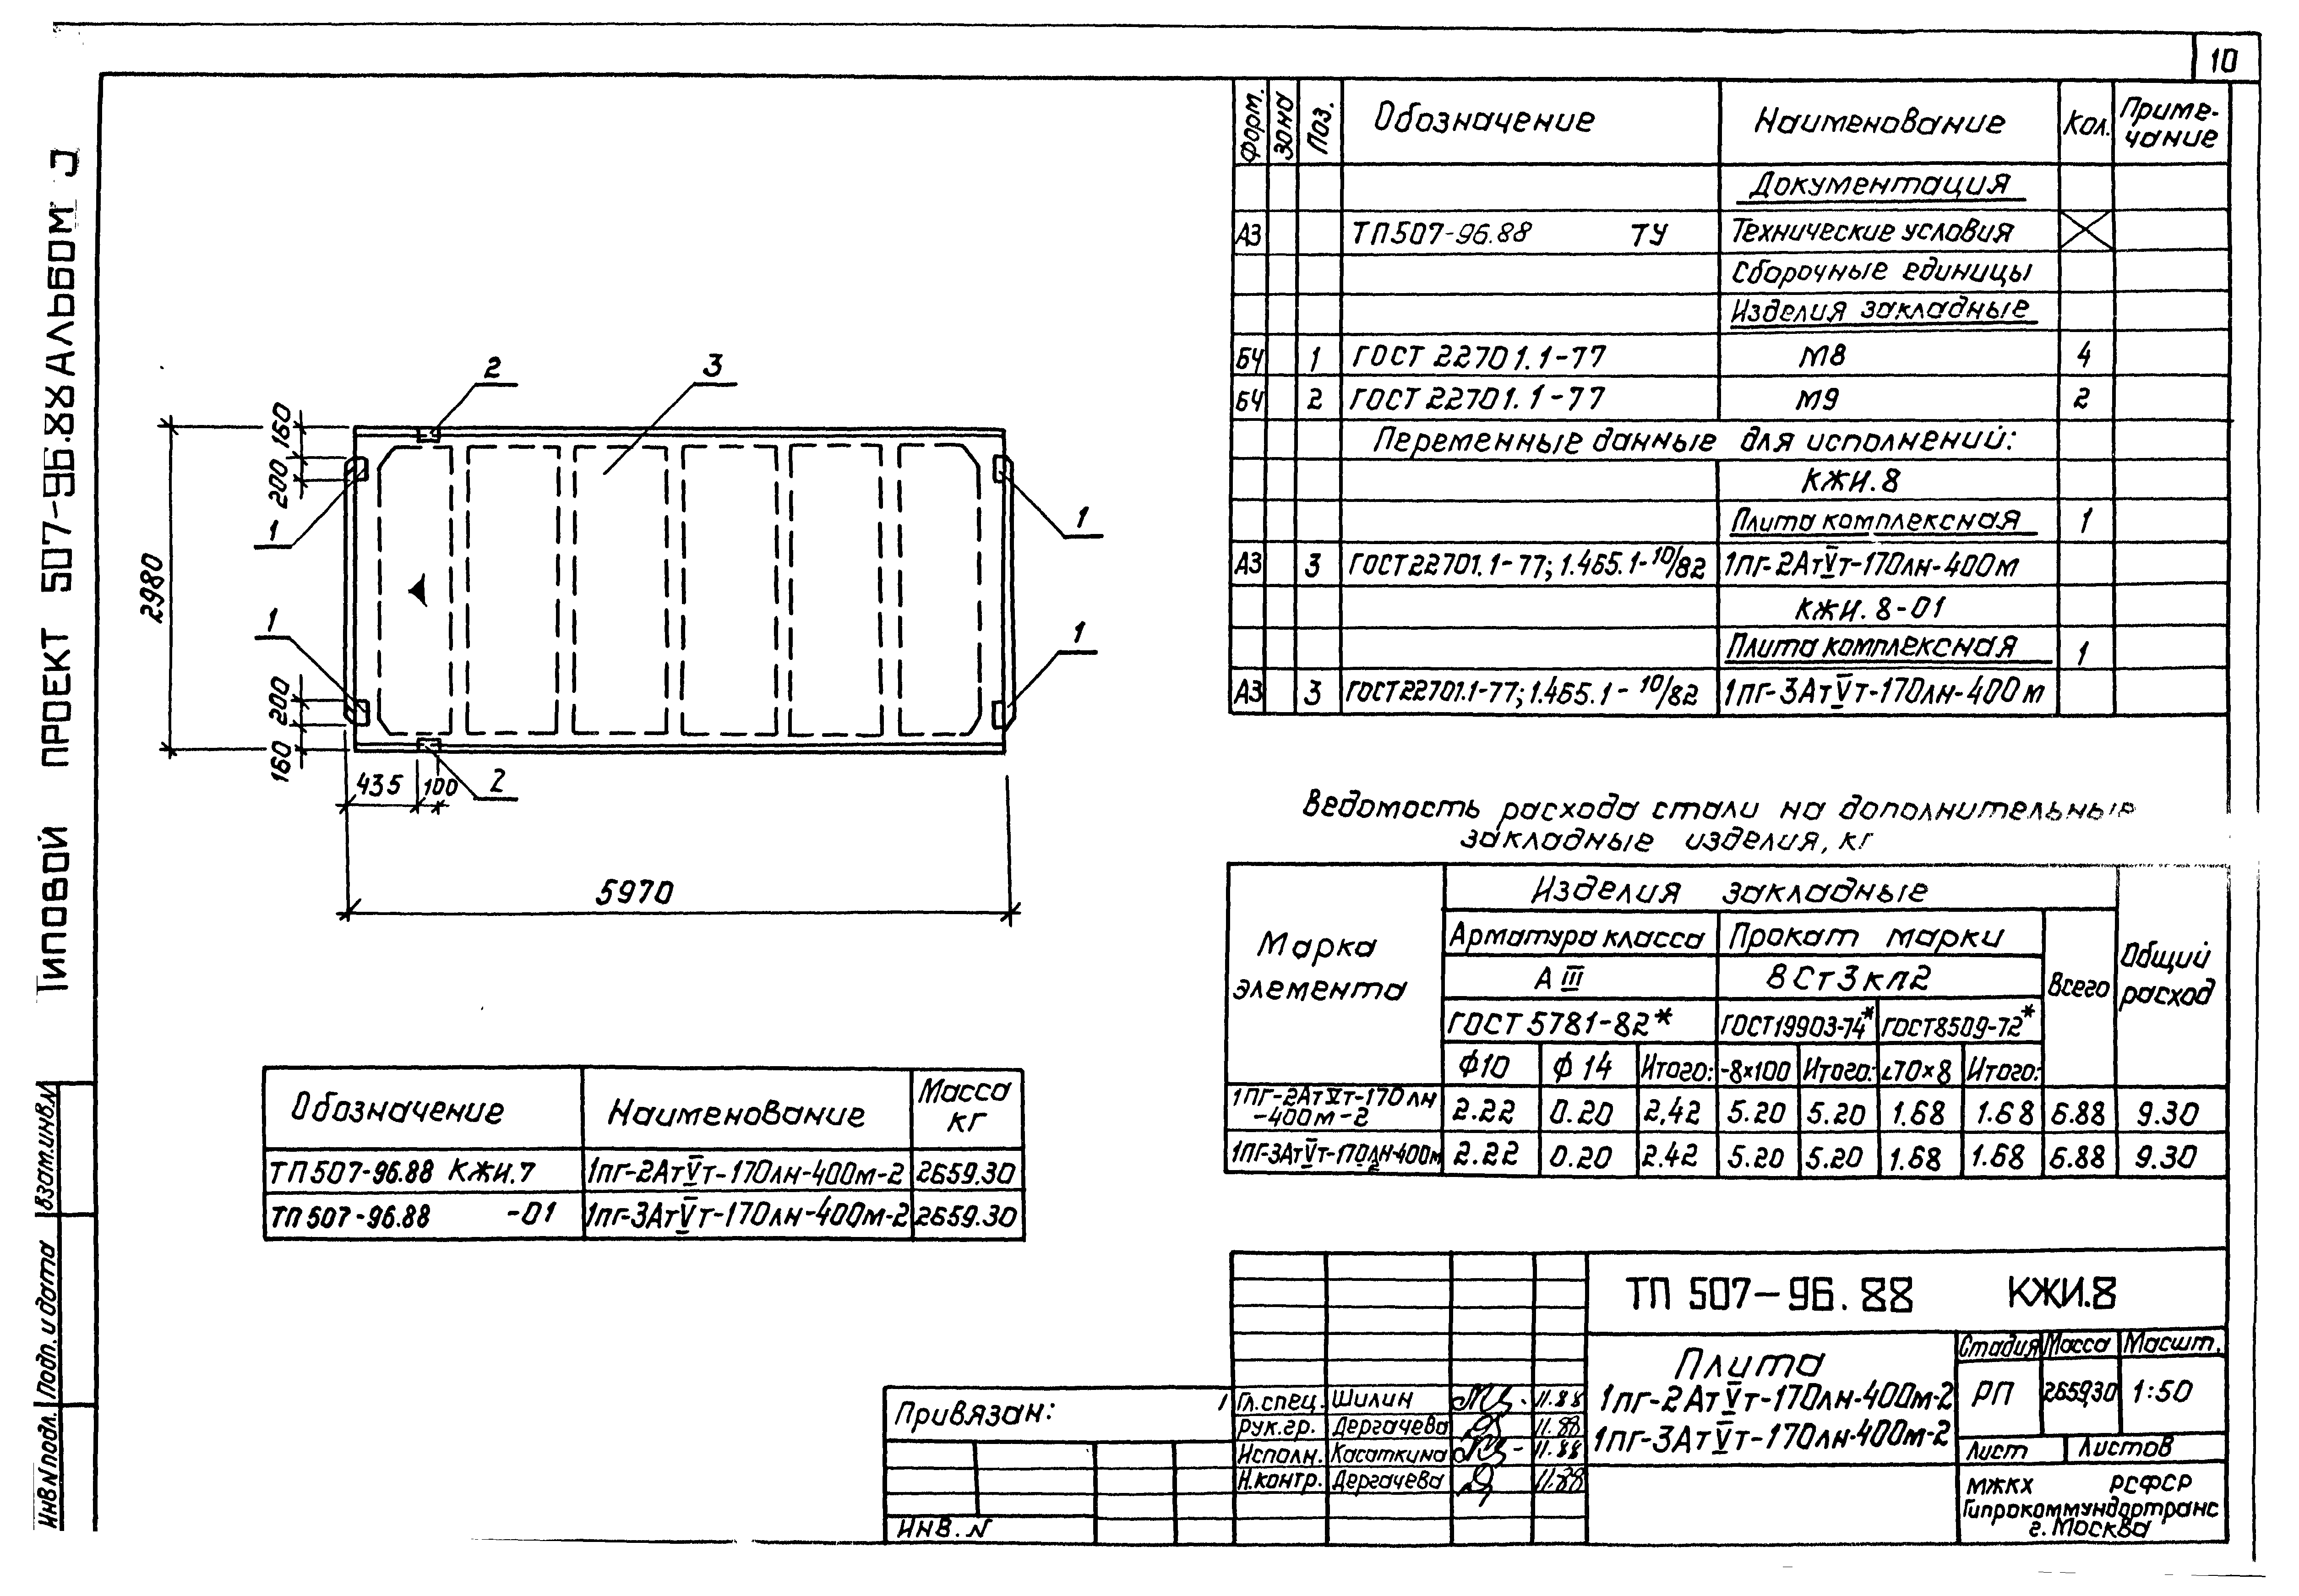 10
Типовой проект 507-96.88 Альбом
Взам.инв.N
Подп. и дата
Инв.N подл.
2
3
160
200
1
1
2980
1
1
200
160
435
100
2
5970
Форм.
Зона
Поз.
Обозначение
Наименование
Кол.
Приме-
чание
Документация
А3 ТП507-96.88 ТУ Технические условия
Сборочные единицы
Изделия закладные
БЧ 1 ГОСТ 22701.1-77 М8 4
БЧ 2 ГОСТ 22701.1-77 М9 2
Переменные данные для исполнений:
КЖИ.8
Плита комплексная 1
А3 3 ГОСТ22701.1-77; 1.465.1-10/82 1пг-2АтVт-170лн-400м
КЖИ.8-01
Плита комплексная 1
А3 3 ГОСТ22701.1-77; 1.465.1-10/82 1пг-3АтVт-170лн-400м
Ведомость расхода стали на дополнительные
закладные изделия, кг
Марка
элемента
Изделия закладные
Общий
расход
Арматура класса
Прокат марки
Всего
А III
ВСт3кп2
ГОСТ 5781-82*
ГОСТ19903-74*
ГОСТ8509-72*
Ф10 Ф 14 Итого: -8х100 Итого: ∟70х8 Итого:
1пг-2АтVт-170лн
-400м-2
2.22 0.20 2.42 5.20 5.20 1.68 1.68 6.88 9.30
1пг-3АтVт-170лн-400м 2.22 0.20 2.42 5.20 5.20 1.68 1.68 6.88 9.30
Обозначение
Наименование
Масса
кг
ТП507-96.88 КЖИ.7 1пг-2АтVт-170лн-400м-2 2659.30
ТП507-96.88 -01 1пг-3АтVт-170лн-400м-2 2659.30
ТП 507-96.88 КЖИ.8
Плита
1пг-2АтVт-170лн-400м-2
1пг-3АтVт-170лн-400м-2
Стадия Масса Масшт.
РП 2659,30 1:50
Лист Листов
МЖКХ РСФСР
Гипрокоммундортранс
г. Москва
Привязан:
Инв. N
Гл.спец. Шилин 11.88
Рук.гр. Дергачева 11.88
Исполн. Касаткина 11.88
Н.контр. Дергачева 11.88